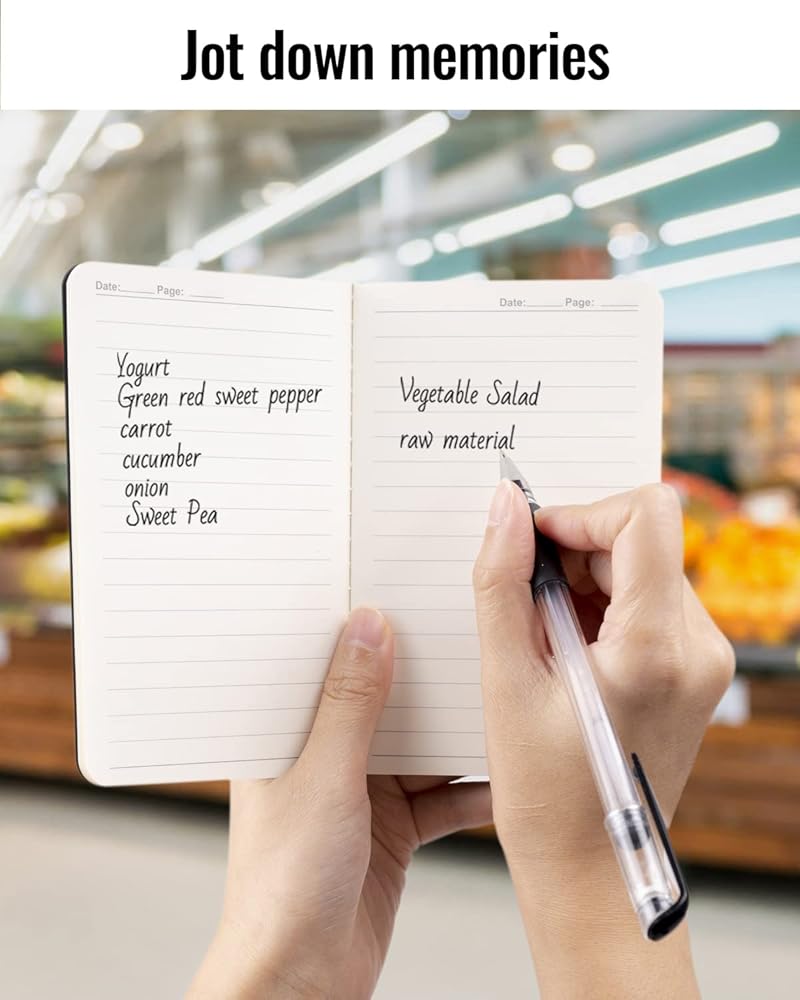 Jot down memories
Date:______ Page: ______
Yogurt
Green red sweet pepper
carrot
cucumber
onion
Sweet Pea
Date:______ Page: ______
Vegetable Salad
raw material